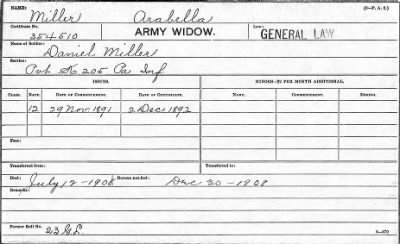 NAME: Miller Arabella (3-P. A. G.)
Certificate No. 354510 ARMY WIDOW. Law: GENERAL LAW
Name of Soldier: Daniel Miller
Service: Pvt K 205 Pa Inf
ISSUES. MINORS—$2 PER MONTH ADDITIONAL.
CLASS. RATE. DATE OF COMMENCEMENT. DATE OF CERTIFICATE. COMMENCEMENT. CERTIFICATE.
12 29 Nov 1891 2 Dec 1892
Fees:
Transferred from: Transferred to:
Died: July 12-1908 Bureau notified: Dec 30-1908
Remarks:
Former Roll No. 23 G L